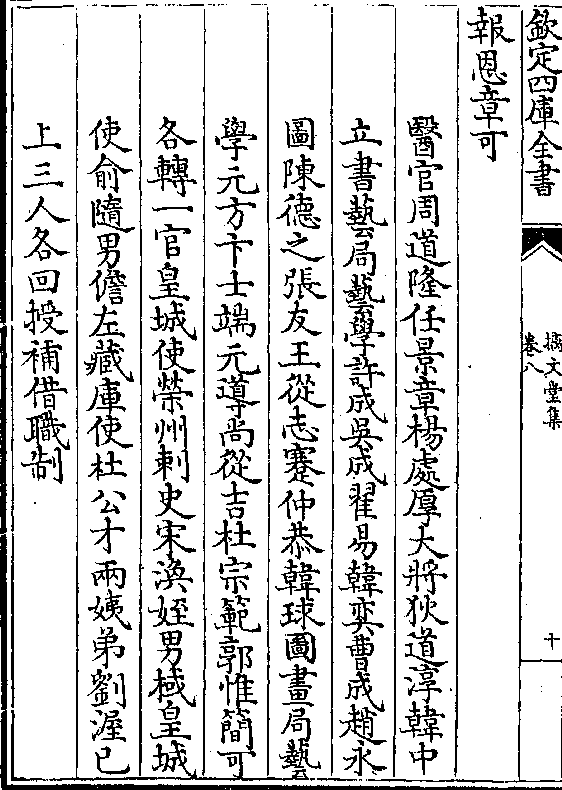 欽定四庫全書
摛文堂集
卷八
十
報恩章可
醫官周道隆任景章楊處厚大將狄道淳韓中
立書藝局藝學許成吳成翟易韓奕曹成趙永
圖陳德之張友王從志蹇仲恭韓球圖畫局藝
學元方卞士端元導尚從吉杜宗範郭惟簡可
各轉一官皇城使榮州刺史宋渙姪男棫皇城
使俞隨男儋左藏庫使杜公才兩姨弟劉渥已
上三人各回授補借職制